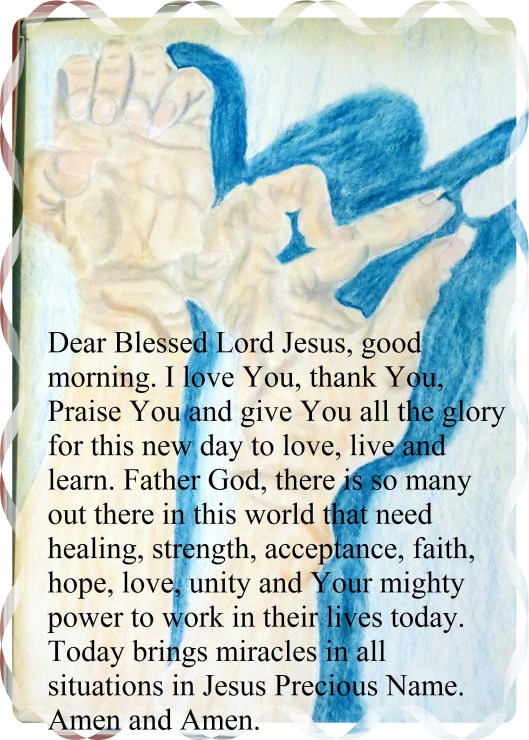 Dear Blessed Lord Jesus, good
morning. I love You, thank You,
Praise You and give You all the glory
for this new day to love, live and
learn. Father God, there is so many
out there in this world that need
healing, strength, acceptance, faith,
hope, love, unity and Your mighty
power to work in their lives today.
Today brings miracles in all
situations in Jesus Precious Name.
Amen and Amen.